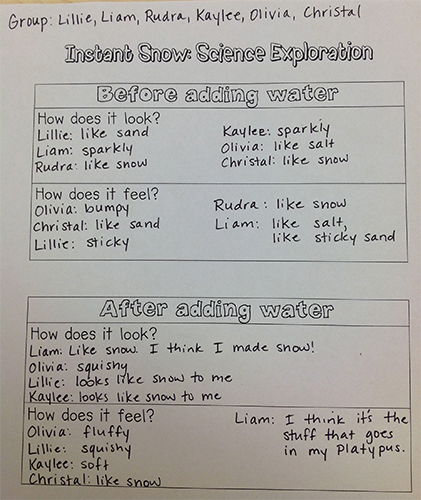 Group: Lillie, Liam, Rudra, Kaylee, Olivia, Christal
Instant Snow: Science Exploration
Before adding water
How does it look?
Lillie: like sand
Liam: sparkly
Rudra: like snow
Kaylee: sparkly
Olivia: like salt
Christal: like snow
How does it feel?
Olivia: bumpy
Christal: like sand
Lillie: sticky
Rudra: like snow
Liam: like salt,
like sticky sand
After adding water
How does it look?
Liam: Like snow. I think I made snow!
Olivia: squishy
Lillie: looks like snow to me
Kaylee: looks like snow to me
How does it feel?
Olivia: fluffy
Lillie: squishy
Kaylee: soft
Christal: like snow
Liam: I think it's the
stuff that goes
in my Platypus.